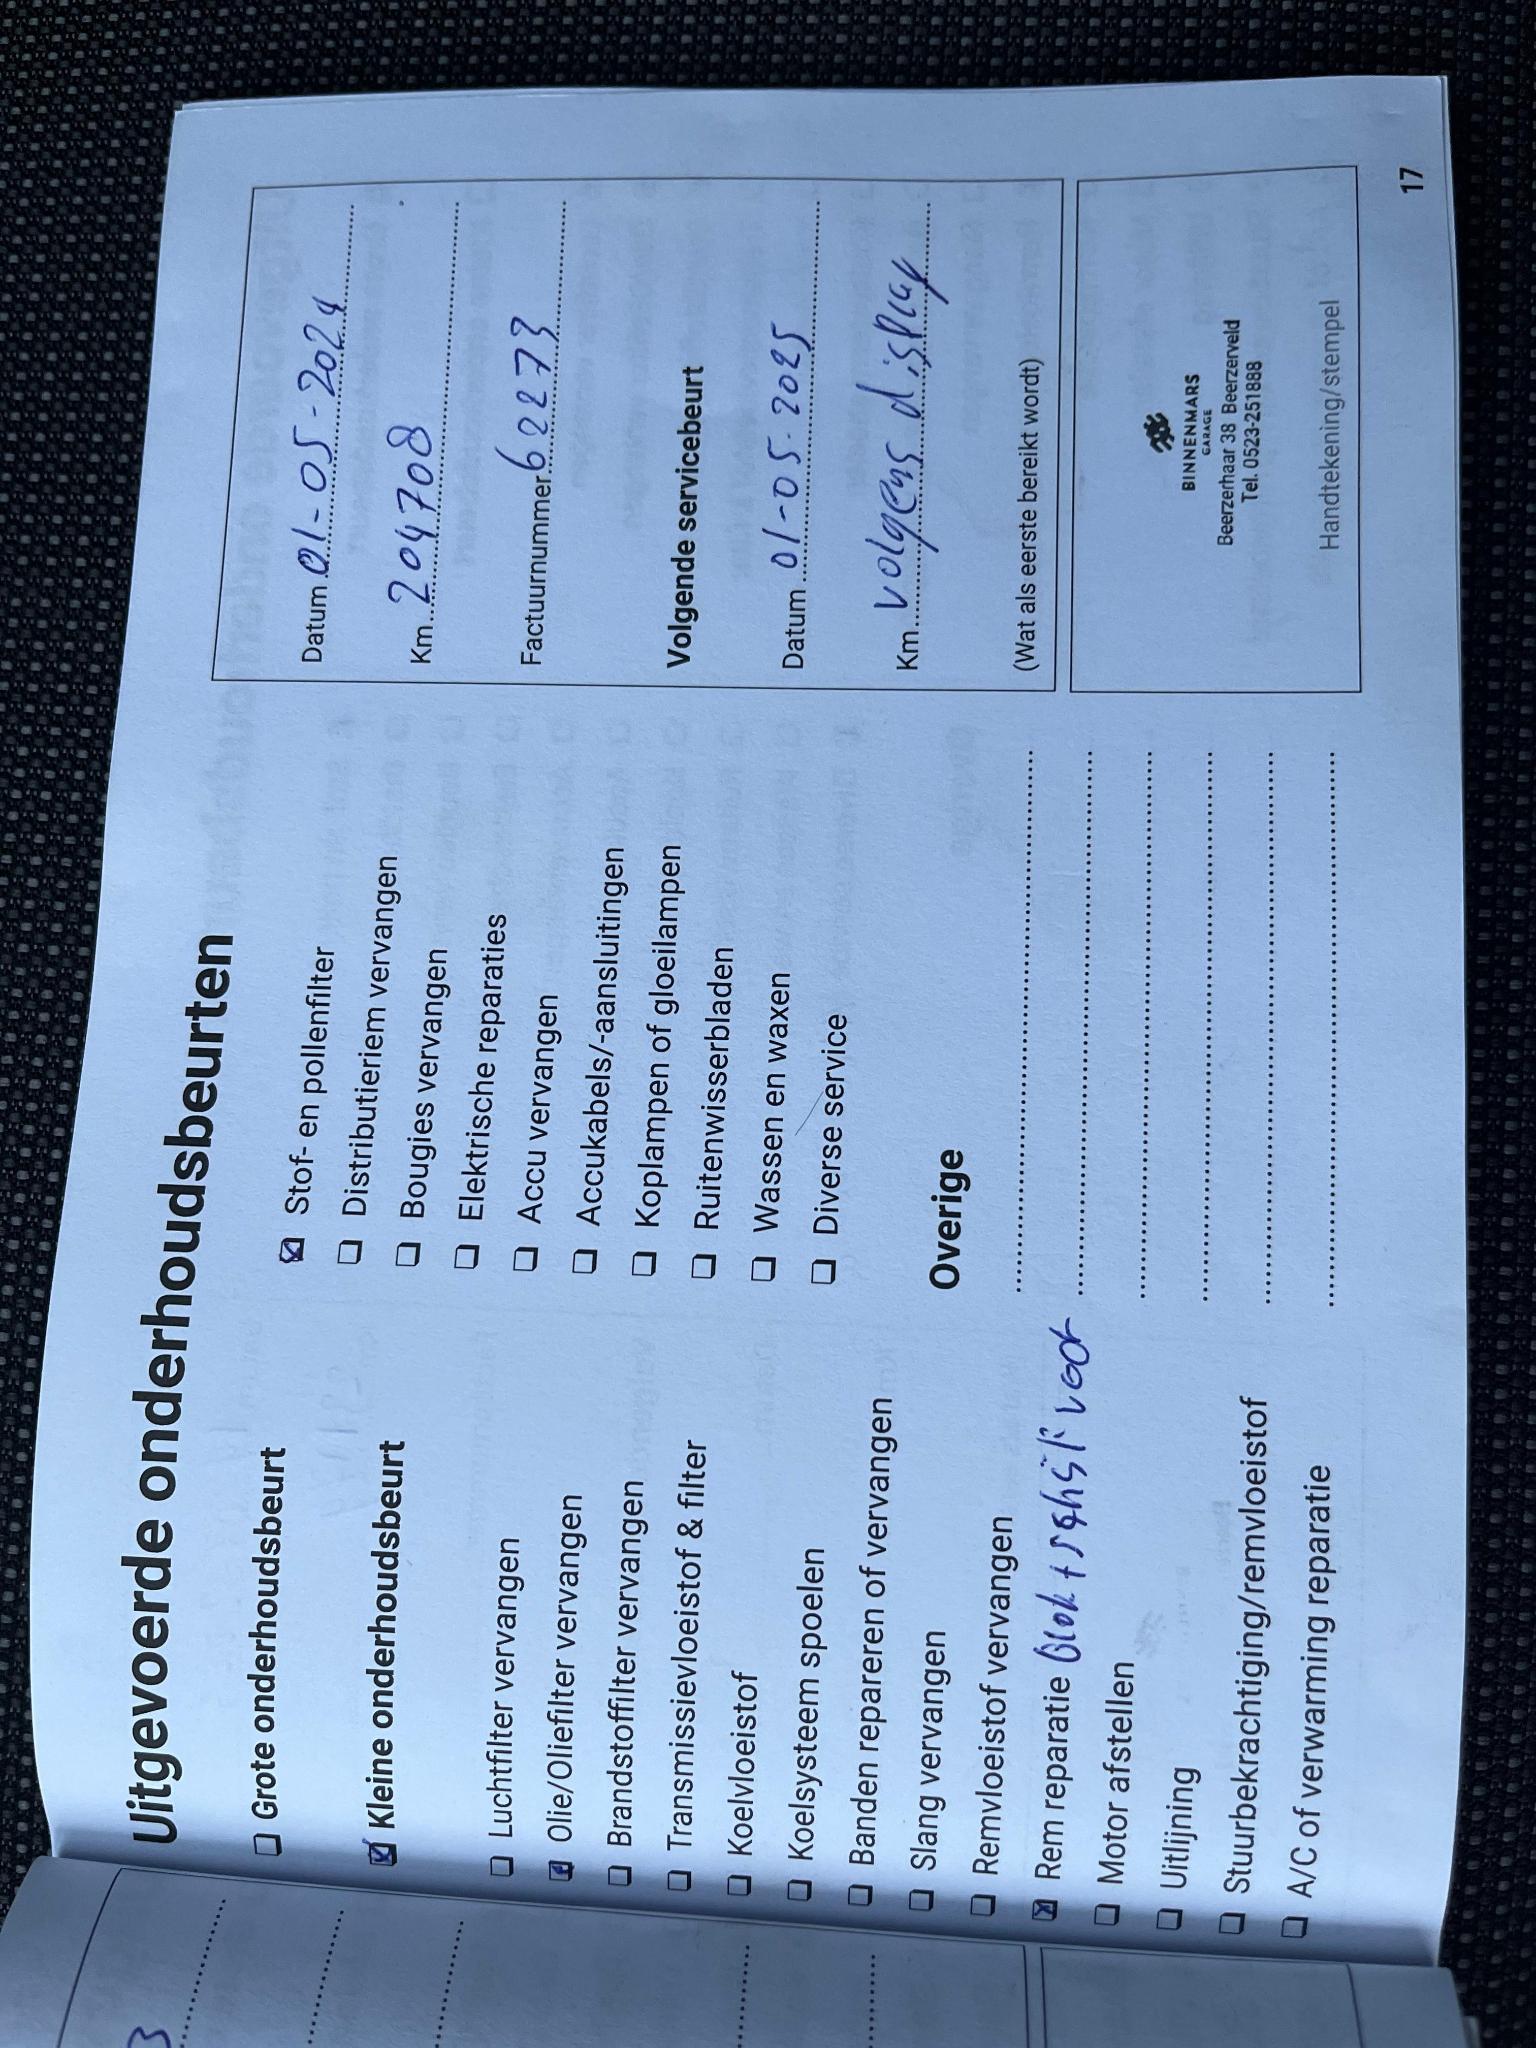 Uitgevoerde onderhoudsbeurten
Grote onderhoudsbeurt
Kleine onderhoudsbeurt
Luchtfilter vervangen
Olie/Oliefilter vervangen
Brandstoffilter vervangen
Transmissievloeistof & filter
Koelvloeistof
Koelsysteem spoelen
Banden repareren of vervangen
Slang vervangen
Remvloeistof vervangen
Rem reparatie Blok +
Motor afstellen
Uitlijning
Stuurbekrachtiging/remvloeistof
A/C of verwarming reparatie
Stof- en pollenfilter
Distributieriem vervangen
Bougies vervangen
Elektrische reparaties
Accu vervangen
Accukabels/-aansluitingen
Koplampen of gloeilampen
Ruitenwisserbladen
Wassen en waxen
Diverse service
Overige
Datum 01-05-2024
Km 204708
Factuurnummer 622273
Volgende servicebeurt
Datum 01-05-2025
Km volgens display
(Wat als eerste bereikt wordt)
BINNENMARS
GARAGE
Beerzerhaar 38 Beerzerveld
Tel. 0523-251888
Handtekening/stempel
17
3